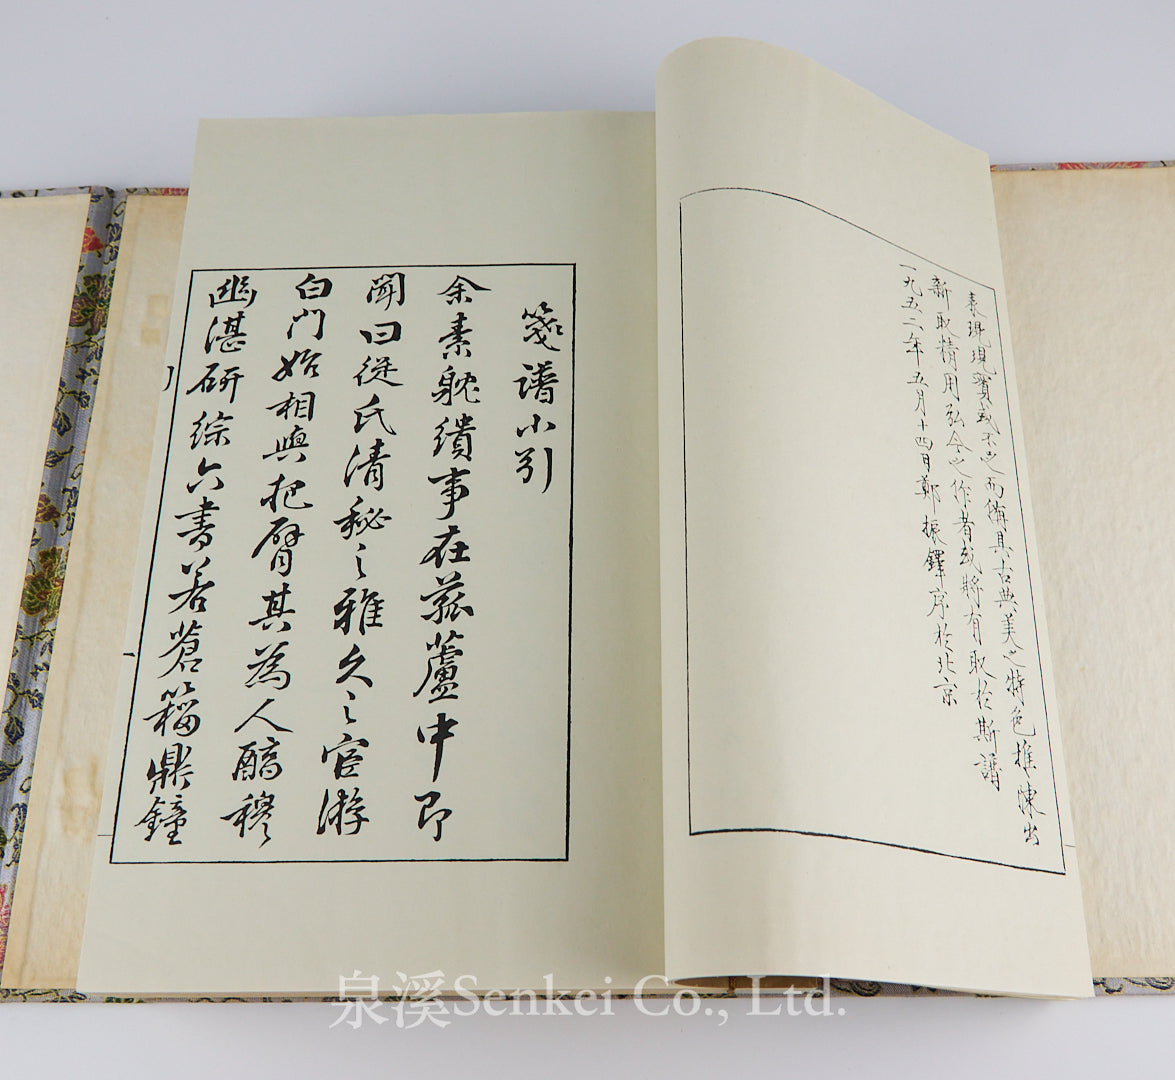 表現現實或不足而備具古典美之特色推陳出
新取精用弘今之作者或將有取於斯譜
一九五二年五月十四日鄭振鐸序於北京
箋譜小引
余素躭繢事在菰蘆中即
聞曰從氏清秘之雅久之宦游
白門始相與把臂其為人醕穆
幽湛研綜六書若蒼籀鼎鐘
泉溪Senkei Co., Ltd.